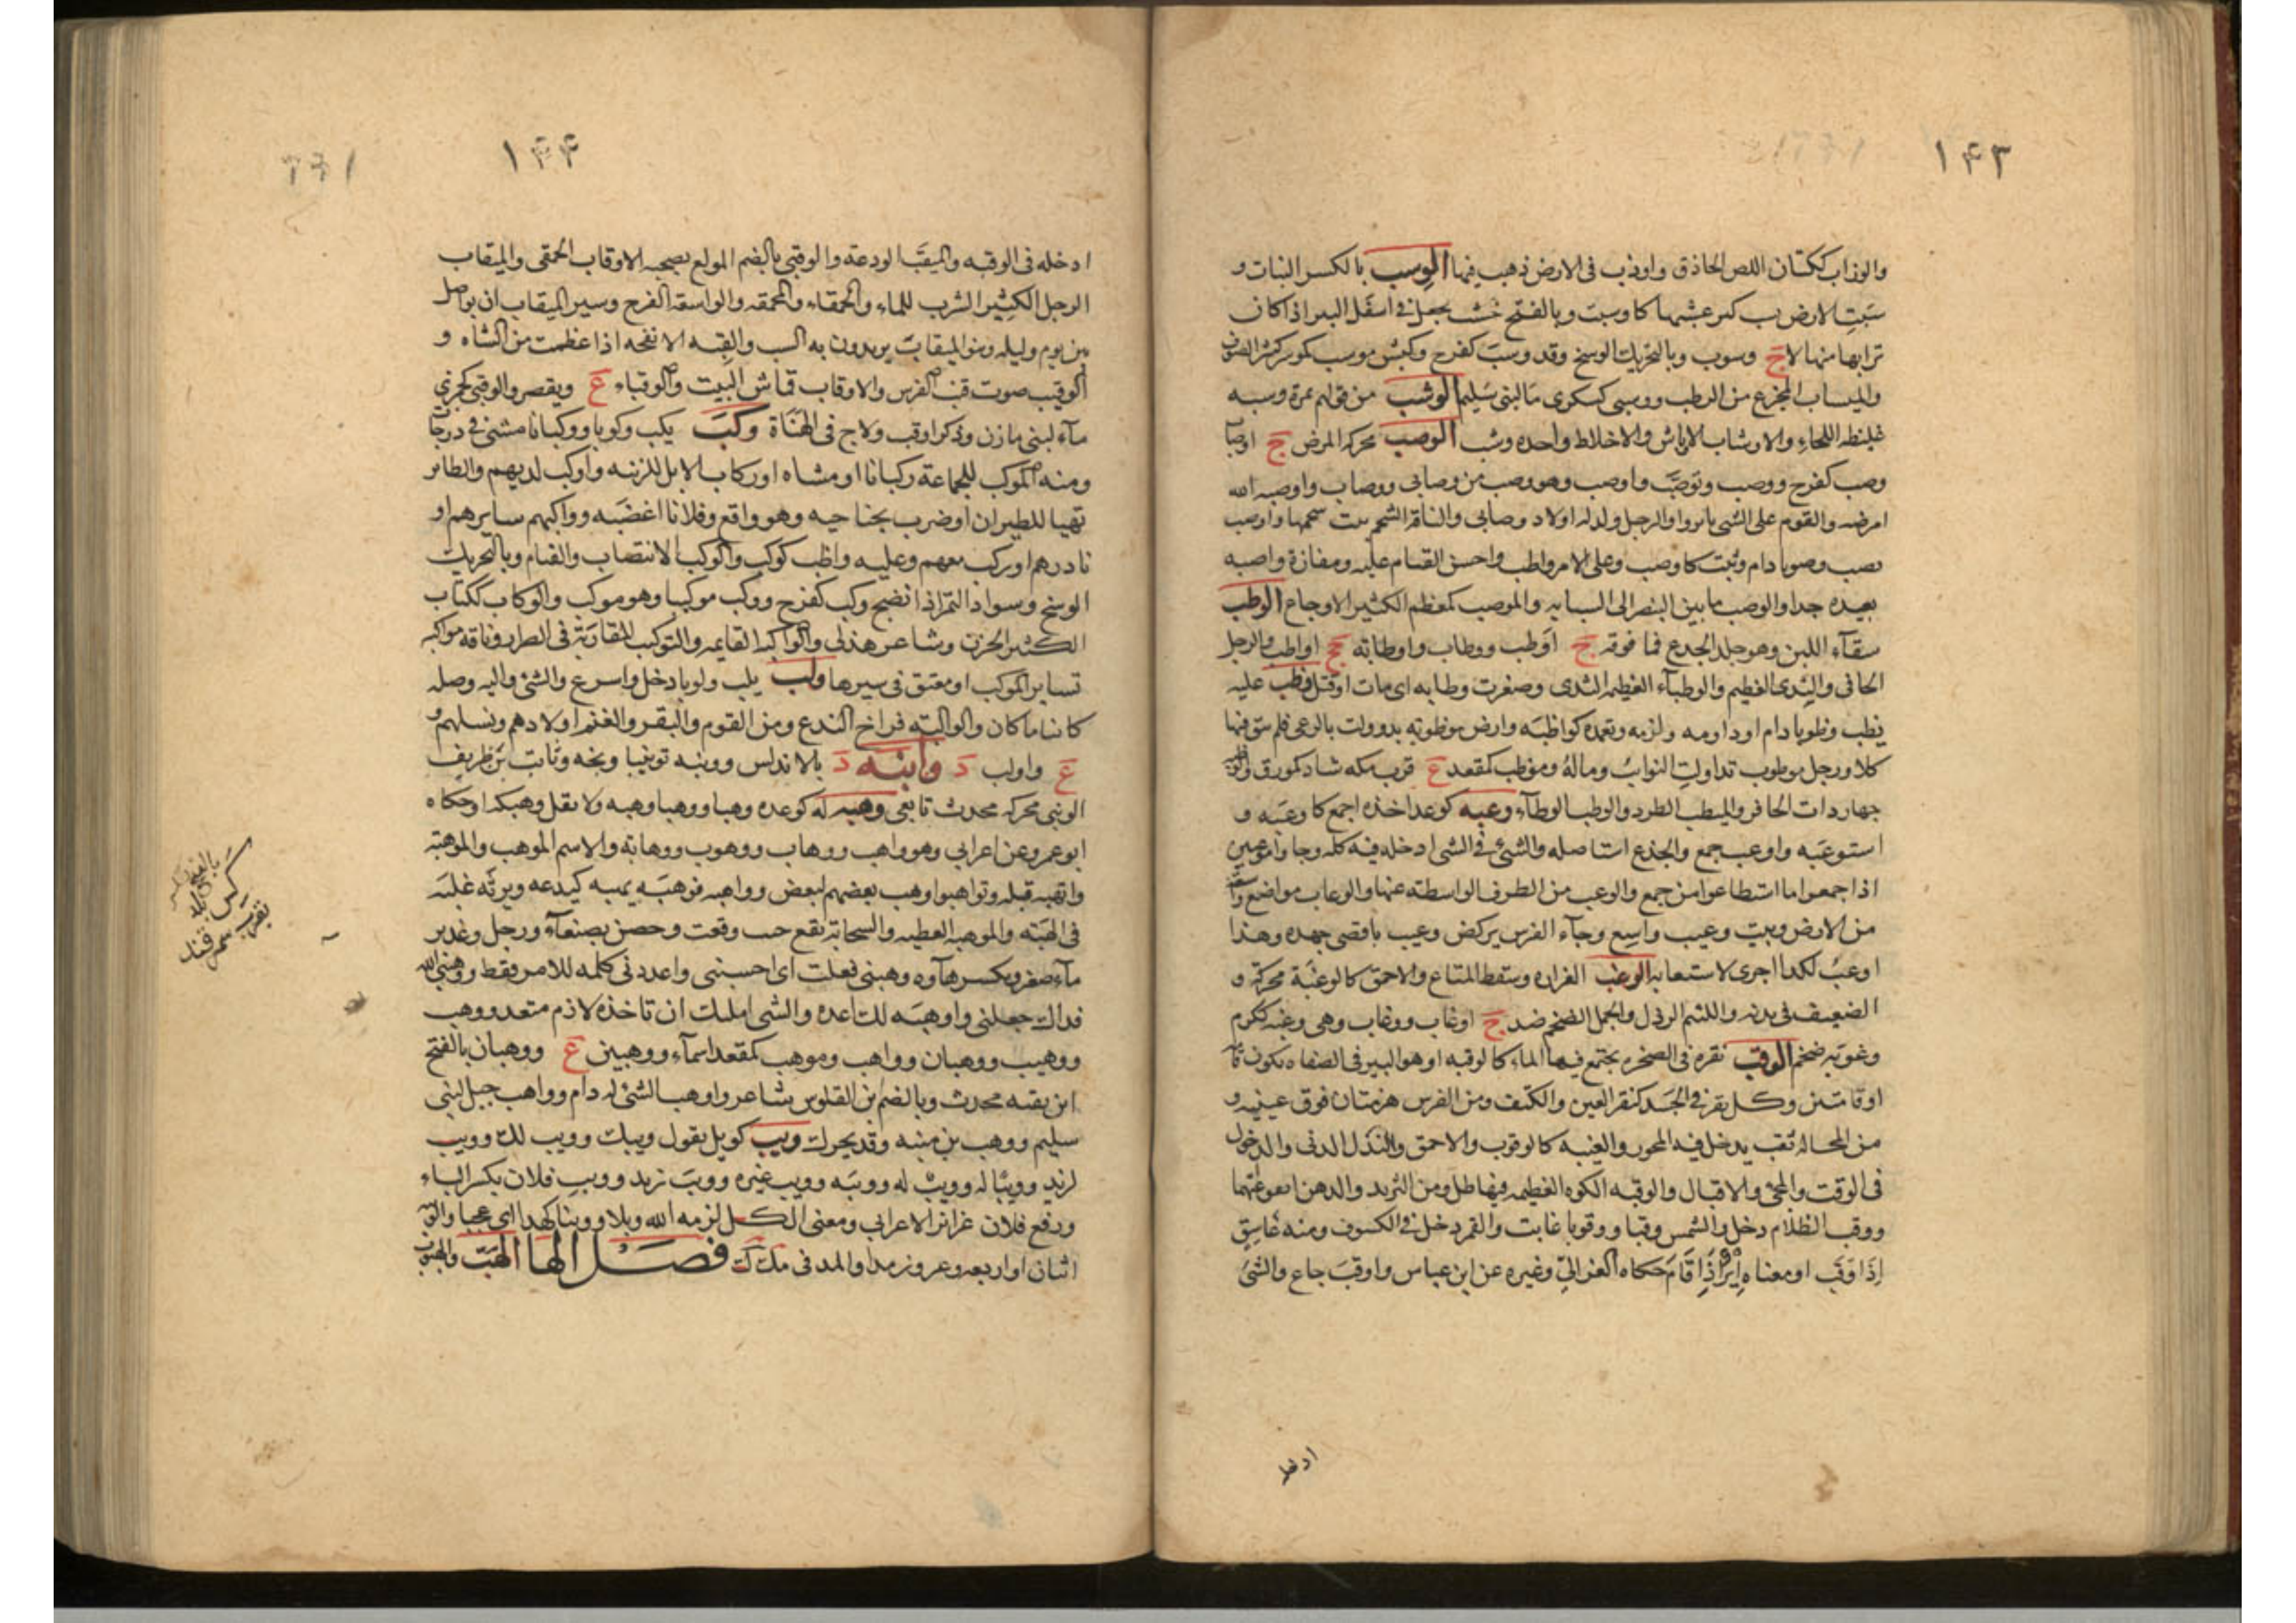 ١٤٣
والوزاب ككتان اللص الحاذق واوزب فى الارض ذهب فيها الوسب بالكسر النبات و
سبت الارض كثر عشبها كاوسبت وبالفتح خشب يجعل فى اسفل البير اذا كان
ترابها منهالا ج وسوب وبالتحريك الوسخ وقد وسب كفرح وكبش موسب كموسر كثير الصوف
والميساب المجزع من الرطب ووسبى كسكرى ماء لبنى سليم الوشب من قولهم تمرة وشبه
غليظه اللحاء والاوشاب الاوباش والاخلاط واحده وشب الوصب محركه المرض ج اوصاب
وصب كفرح ووصب وتوصب واوصب وهو وصب من وصابى ووصاب واوصبه الله
امرضه والقوم على الشى ثابروا والرجل ولد له اولاد وصابى والناقة الشحم نبت شحمها واوصب
يصب وصوبا دام وثبت كاوصب وعلى الامر واظب واحسن القيام عليه ومفازة واصبه
بعيده جدا والوصب ما بين البنصر الى السبابه والموصب كمعظم الكثير الاوجاع الوطب
سقآء اللبن وهو جلد الجدع فما فوقه ج اوطب ووطاب واوطابه جج اواطب والرجل
الجافى والثدى العظيم والوطبآء العظيمه الثدى وصفرت وطابه اى مات او قتل وظب عليه
يظب وظوبا دام او داومه ولزمه وتعهده كواظبه وارض موظوبه تدوولت بالرعى فلم يبق فيها
كلا ورجل موظوب تداولت النوايب ماله وموظب كمقعد ع قرب مكه شاذ كمورق
جهاز ذات الحافر والميظب الظرر والوظب الوطآء وعبه كوعد اخذه اجمع كاوعبه و
استوعبه واوعب جمع والجذع استاصله والشئ فى الشى ادخله فيه كله وجاوا موعبين
اذا جمعوا ما استطاعوا من جمع والوعب من الطرق الواسطه عنها والوعاب مواضع واسعة
من الارض وبيت وعيب واسع وجآء الفرس بركض وعيب باقصى جهده وهذا
اوعب لكذا احرى لاستيعابه الوغب الغراره وسقط المتاع والاحمق كالوغبة محركة و
الضعيف فى بدنه واللئيم الرذل والجمل الضخم ضد ج اوغاب ووغاب وهى وغبه ككرم
وغوبه ضخم الوقب نقره فى الصخره يجتمع فيها الماء كالوقبه او هو البير فى الصفاه يكون قامة
او قامتين وكل نقر فى الجسد كنقر العين والكتف ومن الفرس هزمتان فوق عينيه و
من المحاله ثقب يدخل فيه المحور والغيبه كالوقوب والاحمق والنذل الدنى والدخول
فى الوقت والمجئ والاقبال والوقبه الكوه العظيمه فيها ظل ومن الثريد والدهن انقوعتهما
ووقب الظلام دخل والشمس وقبا ووقوبا غابت والقمر دخل فى الكسوف ومنه غاسق
إذا وقب او معناه اير اذا قام حكاه الغزالي وغيره عن ابن عباس واوقب جاع والشئ
ادخله
١٤٤
ادخله فى الوقبه والميقب الودعة والوقبى بالضم المولع بصحبه الاوقاب الحمقى والميقاب
الرجل الكثير الشرب للماء والحمقاء والمحمقه والواسعة الفرج وسير الميقاب ان يواصل
بين يوم وليله وبنو الميقاب يريدون به السب والقبه الانفحه اذا عظمت من الشاه و
الوقيب صوت قنب الفرس والاوقاب قماش البيت والوقباء ع ويقصر والوقبى كجمزى
مآء لبنى مازن وذكر اوقب ولاج فى الهناة وكب يكب وكوبا ووكبانا مشى فى درجان
ومنه الموكب للجماعة ركبانا او مشاه او ركاب الابل للزينه واوكب لزمهم والطائر
تهيا للطيران او ضرب بجناحيه وهو واقع وفلانا اغضبه وواكبهم سايرهم او
بادرهم او ركب معهم وعليه واظب كوكب والوكب الانتصاب والقيام وبالتحريك
الوسخ وسواد التمر اذا انضج وكب كفرح ووكب توكيبا وهو موكب والوكاب ككتاب
الكثير الحزن وشاعر هذلى والواكبه القايمه والتوكيب المقاربة فى الصرار وناقه مواكبه
تساير الموكب او معنق فى سيرها ولب يلب ولوبا دخل واسرع والشئ واليه وصله
كائنا ما كان والوالبه فراخ الزرع ومن القوم والبقر والغنم اولادهم ونسلهم و
ع واولب د وابنه د بالاندلس ووبنه تونيبا وبخه وثابت بن طريف
الونبى محركه محدث تابعى وهبه له كوعده وهبا ووهبا وهبه ولا تقل وهبكه او حكاه
ابو عمرو عن اعرابى وهو واهب ووهاب ووهوب ووهابة والاسم الموهب والموهبة
واتهبه قبله وتواهبوا وهب بعضهم لبعض وواهبه فوهبه يهبه كيدعه ويرثه غلبه
فى الهبة والموهبه العطيه والسحابة تقع حيث وقعت وحصن بصنعآء ورجل وغدير
مآء صغير وتكسر هآوه وهبنى فعلت اى احسبنى واعددنى كلمه للامر فقط ووهبنى الله
فداك جعلنى واوهبه لك اعده والشى امكنك ان تاخذه لازم متعد ووهب
ووهيب ووهبان وواهب وموهب كمقعد اسمآء ووهبين ع ووهبان بالفتح
ابن بقيه محدث وبالضم بن القلوص شاعر واوهب الشئ له دام وواهب جبل لبنى
سليم ووهب بن منبه وقد يحرك ويب كويل تقول ويبك وويب لك وويب
لزيد وويبا له وويب له وويبه وويب غيره وويب زيد وويب فلان بكسر الباء
ورفع فلان عن ابن الاعرابى ومعنى الكل الزمه الله ويلا وويبا لهذا اى عجبا والويبه
اثنان او اربعه وعشرون مدا والمد فى م ك ك فصل الها الهب والهبوب